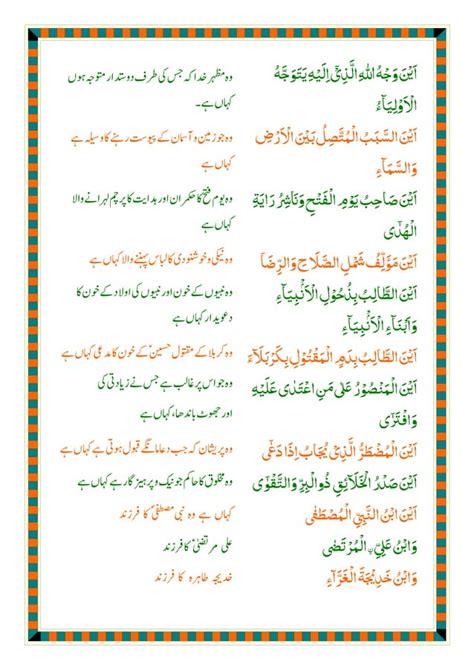 اَیْنَ وَجْهُ اللّٰهِ الَّذِیْۤ اِلَیْهِ یَتَوَجَّهُ
الْاَوْلِیَآءُ
وہ مظہر خدا کہ جس کی طرف دوستدار متوجہ ہوں
کہاں ہے۔
اَیْنَ السَّبَبُ الْمُتَّصِلُ بَیْنَ الْاَرْضِ
وَالسَّمَآءِ
وہ جو زمین و آسمان کے پیوست رہنے کا وسیلہ ہے
کہاں ہے
اَیْنَ صَاحِبُ یَوْمِ الْفَتْحِ وَنَاشِرُ رَایَةِ
الْهُدٰی
وہ یوم فتح کا حکمران اور ہدایت کا پرچم لہرانے والا
کہاں ہے۔
اَیْنَ مُؤَلِّفُ شَمْلِ الصَّلَاحِ وَالرِّضَا
وہ نیکی و خوشنودی کا لباس پہننے والا کہاں ہے
اَیْنَ الطَّالِبُ بِذُحُوْلِ الْاَنْبِیَآءِ
وَاَبْنَآءِ الْاَنْبِیَآءِ
وہ نبیوں کے خون اور نبیوں کی اولاد کے خون کا
دعویدار کہاں ہے
اَیْنَ الطَّالِبُ بِدَمِ الْمَقْتُوْلِ بِكَرْبَلَآءَ
وہ کربلا کے مقتول حسینؑ کے خون کا مدعی کہاں ہے
اَیْنَ الْمَنْصُوْرُ عَلٰی مَنِ اعْتَدٰی عَلَیْهِ
وَافْتَرٰی
وہ جو اس پر غالب ہے جس نے زیادتی کی
اور جھوٹ باندھا، کہاں ہے
اَیْنَ الْمُضْطَرُّ الَّذِیْ یُجَابُ اِذَا دَعٰی
وہ پریشان کہ جب دعا مانگے قبول ہوتی ہے کہاں ہے
اَیْنَ صَدْرُ الْخَلَآئِقِ ذُوالْبِرِّ وَالتَّقْوٰی
وہ مخلوق کا حاکم جو نیک و پرہیزگار ہے کہاں ہے
اَیْنَ ابْنُ النَّبِیِّ الْمُصْطَفٰی
کہاں ہے وہ نبی مصطفیؐ کا فرزند
وَابْنُ عَلِیِّ ِ الْمُرْتَضٰی
علی مرتضیٰؑ کا فرزند
وَابْنُ خَدِیْجَةَ الْغَرَّآءِ
خدیجہ طاہرہ کا فرزند